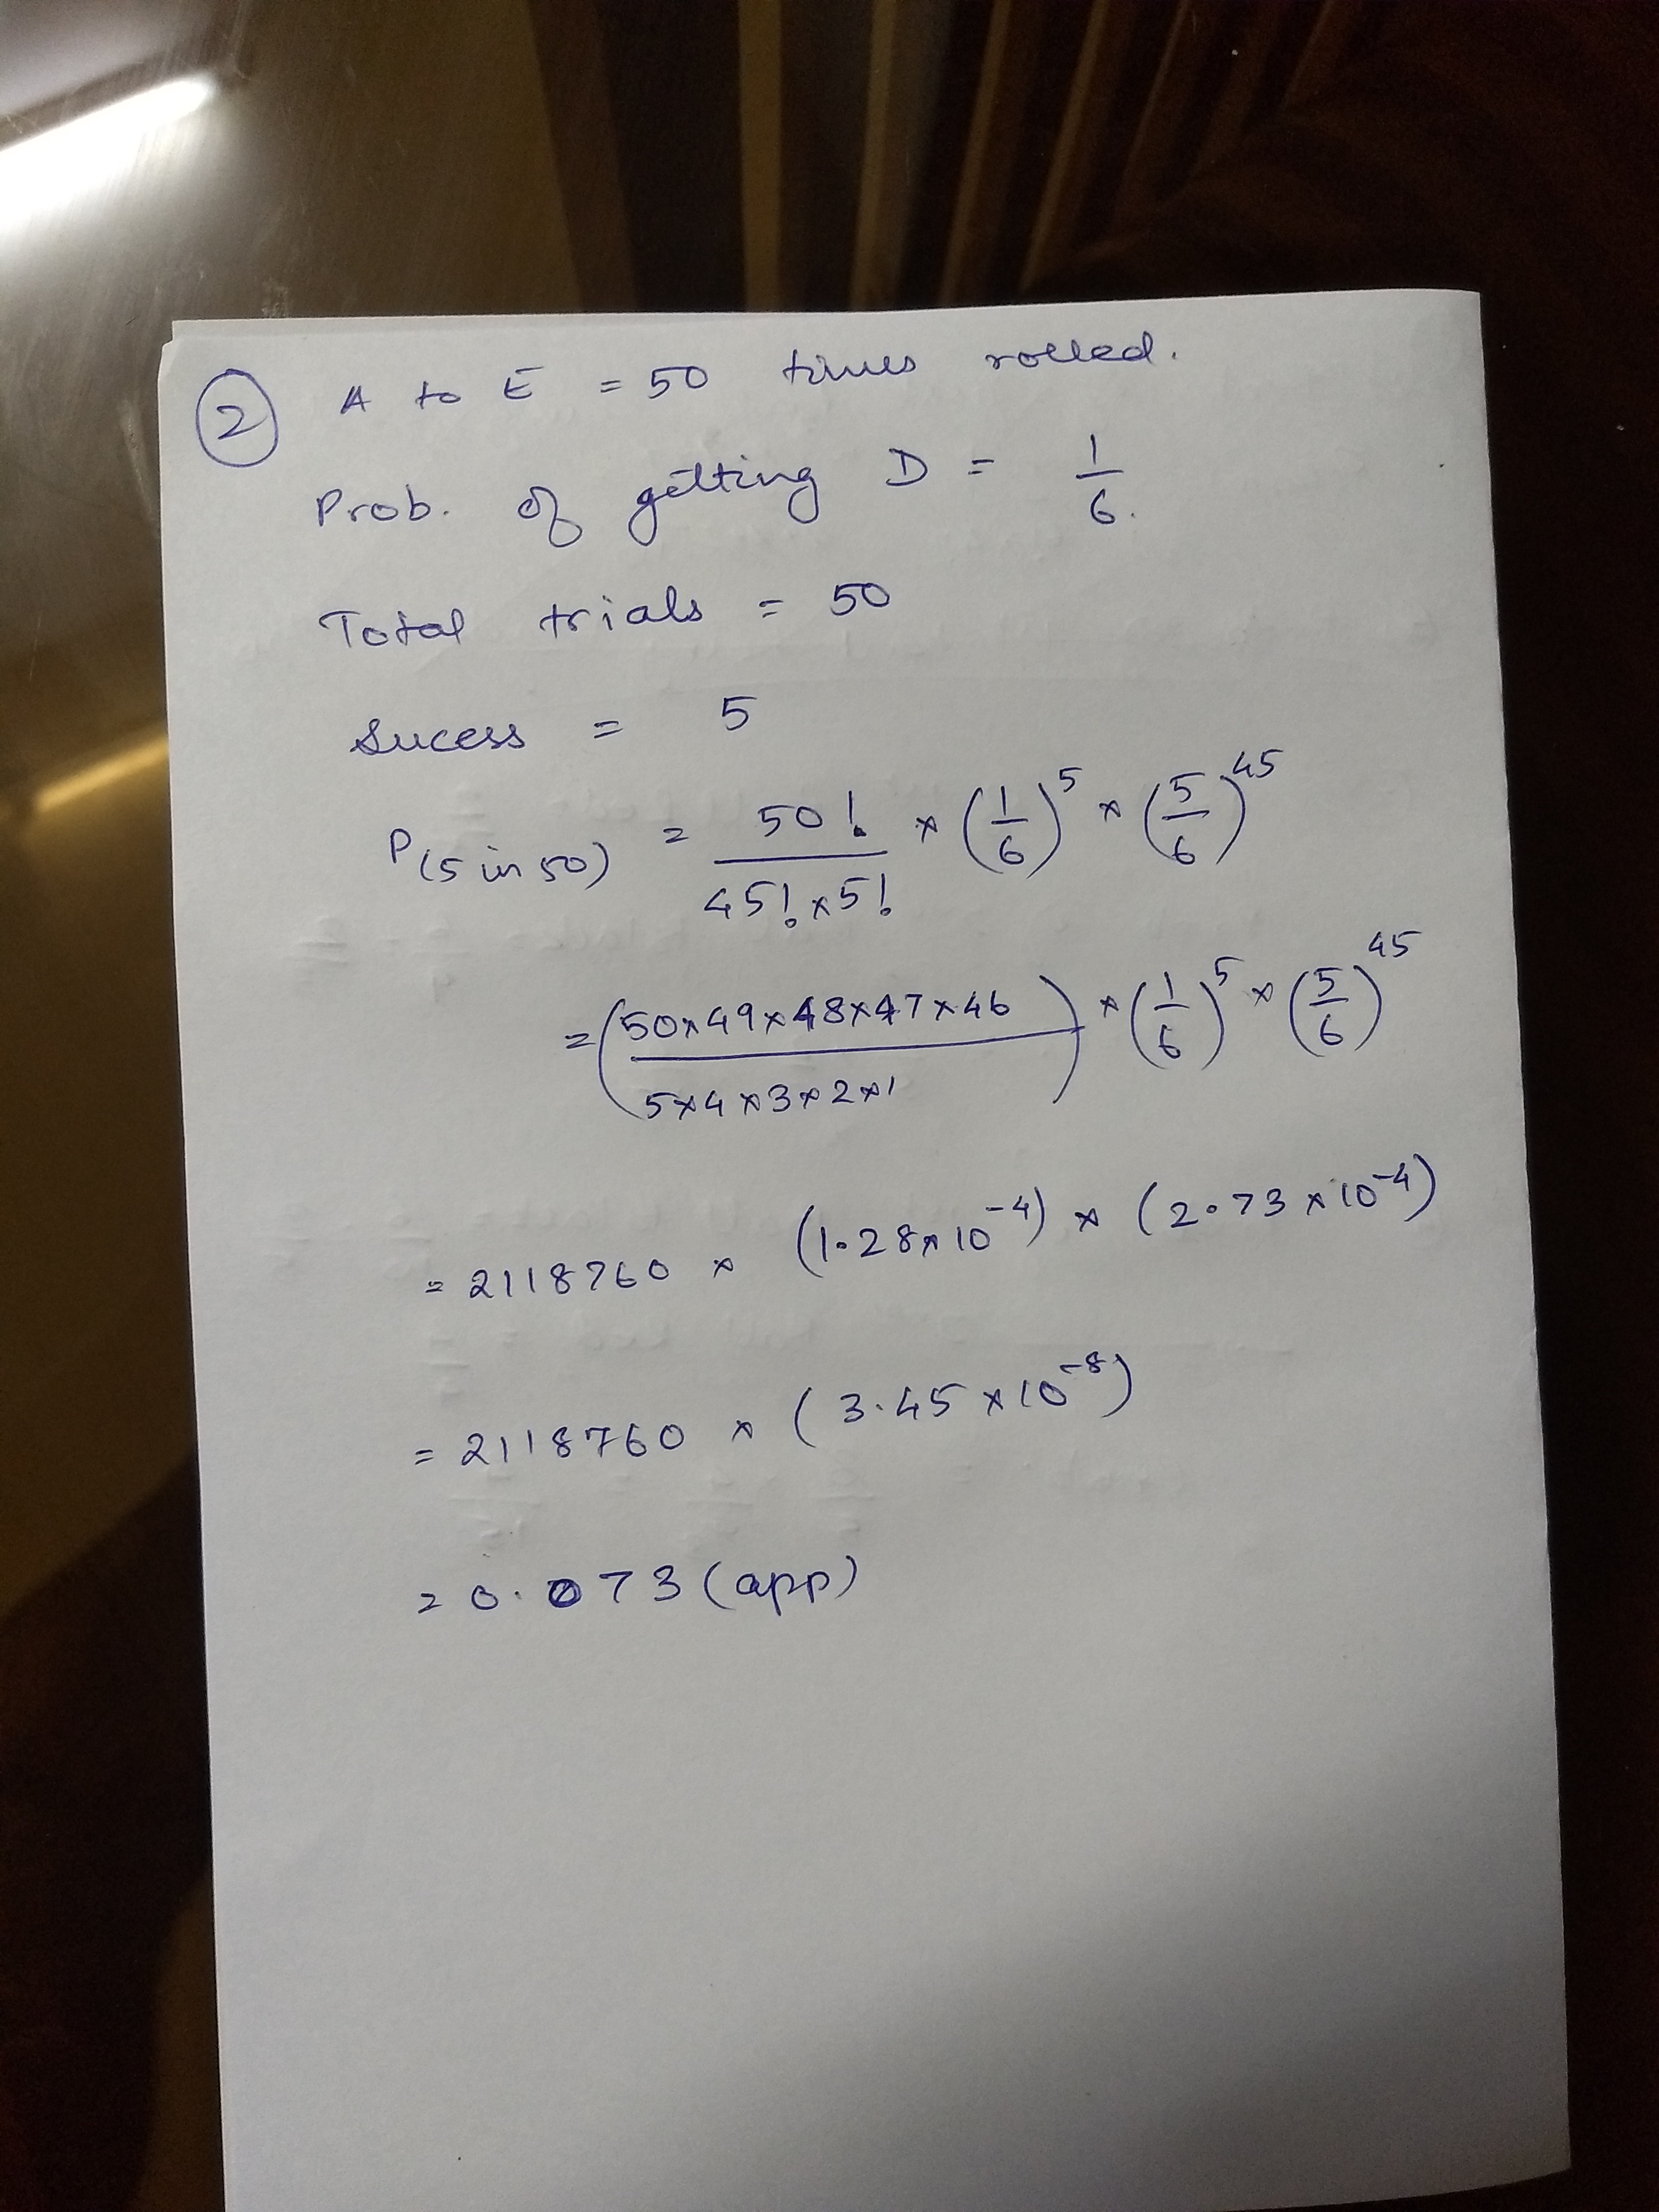 ② A to E = 50 times rolled.
Prob. of getting D = 1/6.
Total trials = 50
Sucess = 5
P(5 in 50) = 50! / 45! × 5! × (1/6)^5 × (5/6)^45
= (50×49×48×47×46 / 5×4×3×2×1) × (1/6)^5 × (5/6)^45
= 2118760 × (1.28×10^-4) × (2.73×10^-4)
= 2118760 × (3.45×10^-8)
= 0.073 (app)